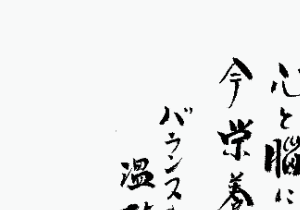 心と脳に
今栄養
バランス
温